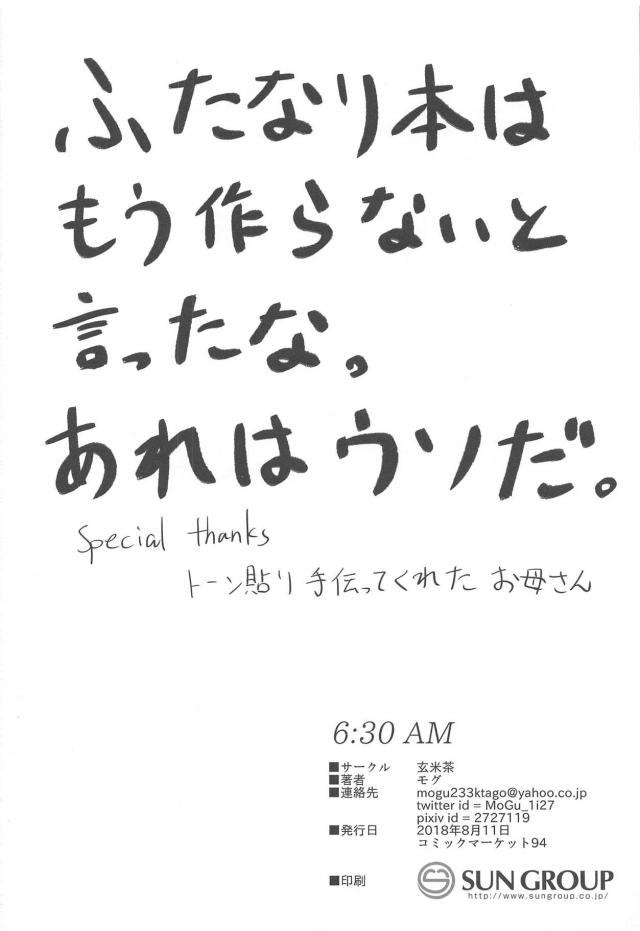 ふたなり本は
もう作らないと
言ったな。
あれはウソだ。
Special thanks
トーン貼り 手伝ってくれた お母さん
6:30 AM
■サークル 玄米茶
■著者 モグ
■連絡先 mogu233ktago@yahoo.co.jp
twitter id = MoGu_1i27
pixiv id = 2727119
■発行日 2018年8月11日
コミックマーケット94
■印刷 SUN GROUP
http://www.sungroup.co.jp/